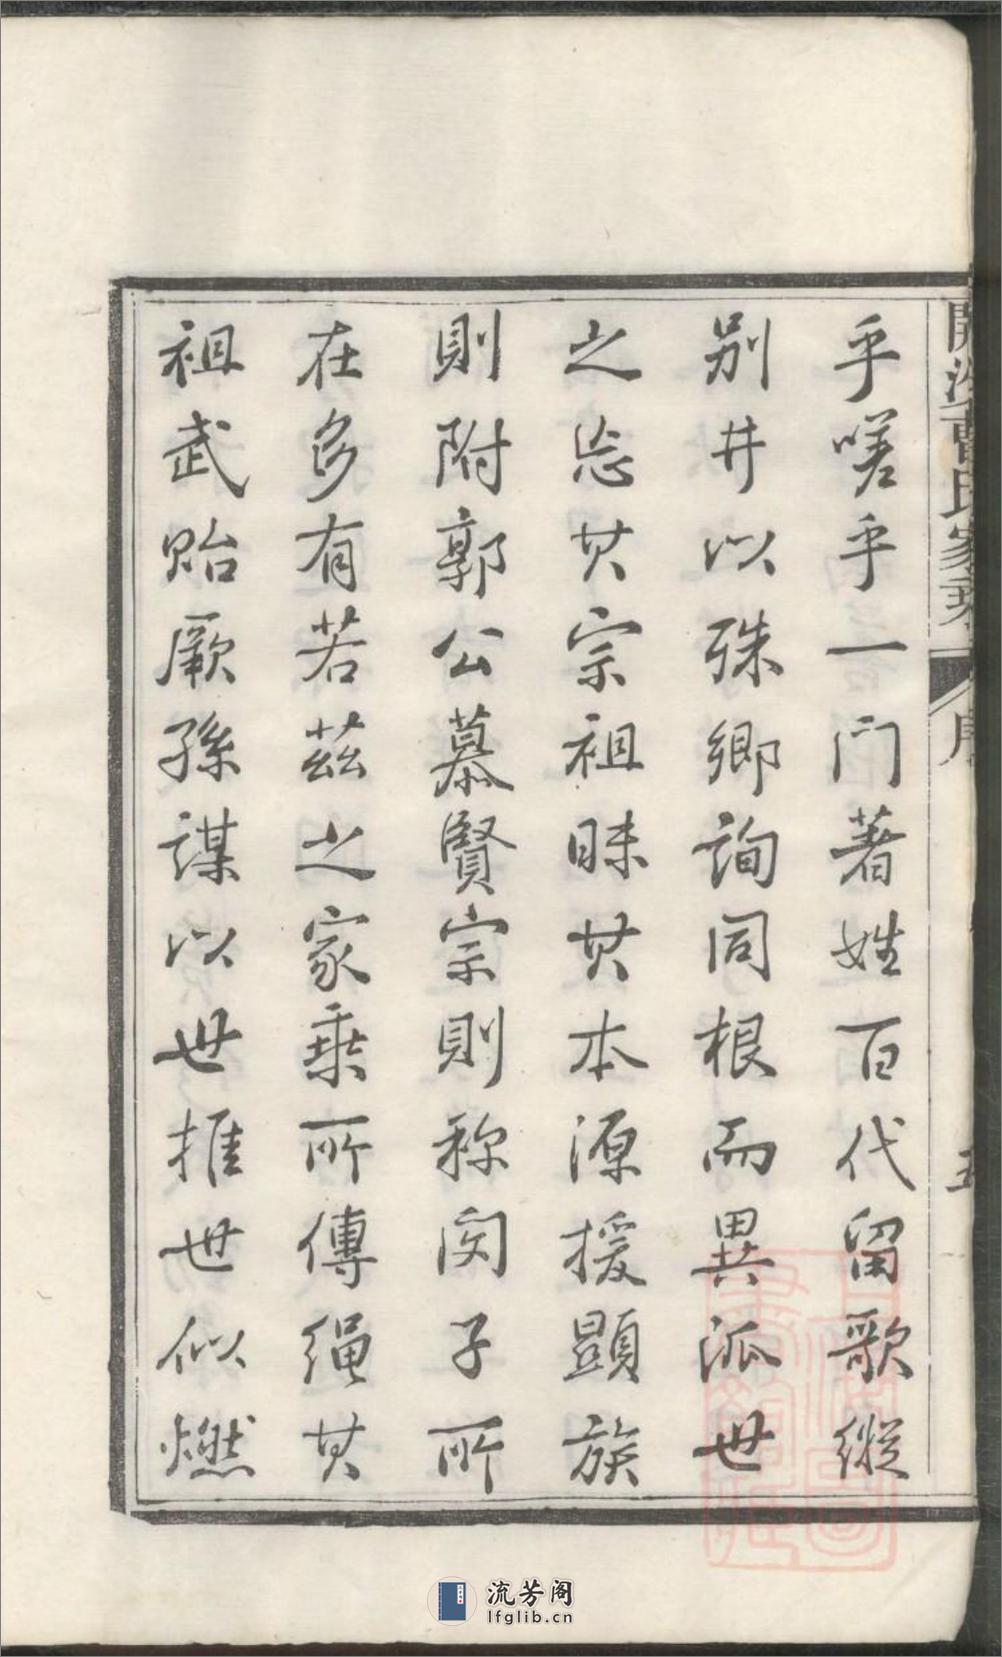 乎嗟乎一门著姓百代留歌縱
别井以殊鄉詢同根而異派世
之忘其宗祖昧其本源援顯族
則附郭公慕賢宗則称闵子所
在多有若茲之家乗所傳绳其
祖武貽厥孫謀以世推世似燃
曹氏家乘
流芳阁
lfglib.cn